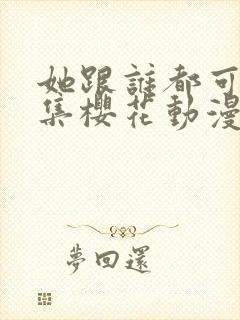 她跟誰都可
集櫻花動漫
夢回還